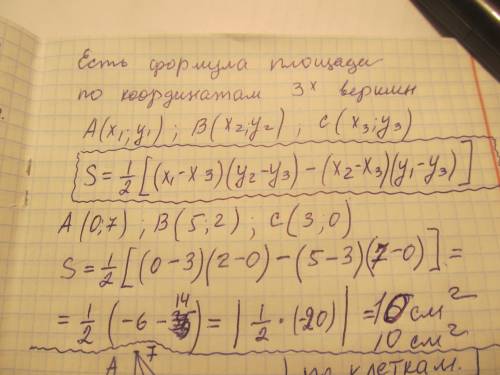 Есть формула площади
по координатам 3х вершин
A(x₁;y₁) ; B(x₂;y₂) ; C(x₃;y₃)
S=½[(x₁-x3)(y₂-y₃)-(x₂-x₃)(y₁-y₃)]
A(0;7) ; B(5;2) ; C(3,0)
S=½[(0-3)(2-0)-(5-3)(7-0)]=
=½(-6-14)=|½·(-20)|=10см²
10см²
A 7 по клеткам.